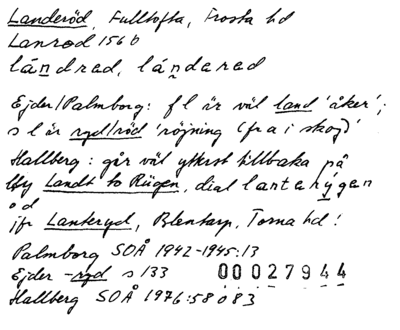 Landeröd, Fulltofta, Frosta hd
Lanrød 1560
lándrad, lándarad
Ejder/Palmborg: f l är väl land 'åker';
s l är ryd/röd 'röjning (fra i skog)'
Hallberg: går väl ytterst tillbaka på
Landt to Rügen, dial lantarýgen
o d
jfr Lanteryd, Blentarp, Torna hd!
Palmborg SOÅ 1942-1945:13
Ejder -ryd s 133 00027944
Hallberg SOÅ 1976:58 o 83